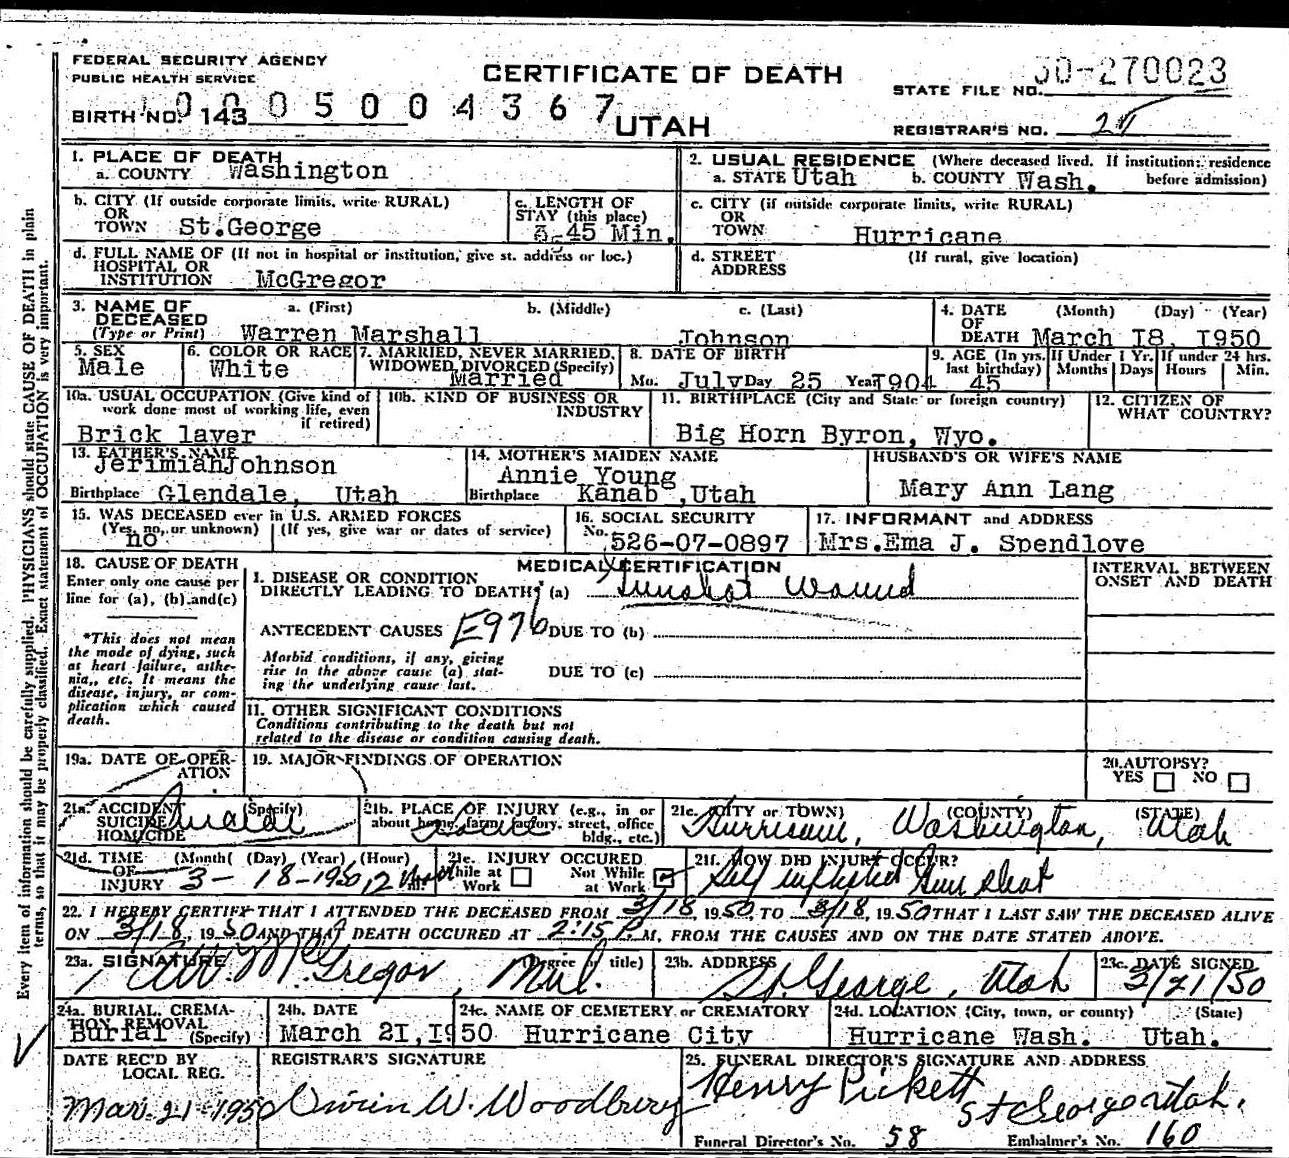 FEDERAL SECURITY AGENCY
PUBLIC HEALTH SERVICE
CERTIFICATE OF DEATH
STATE FILE NO. 50-270023
BIRTH NO. 143
0005004367
UTAH
REGISTRAR'S NO.
1. PLACE OF DEATH
a. COUNTY Washington
2. USUAL RESIDENCE (Where deceased lived. If institution: residence before admission)
a. STATE Utah b. COUNTY Wash.
b. CITY (If outside corporate limits, write RURAL)
OR
TOWN St.George
c. LENGTH OF
STAY (this place)
45 Min.
c. CITY (if outside corporate limits, write RURAL)
OR
TOWN Hurricane
d. FULL NAME OF (If not in hospital or institution, give st. address or loc.)
HOSPITAL OR
INSTITUTION McGregor
d. STREET (If rural, give location)
ADDRESS
3. NAME OF DECEASED a. (First) b. (Middle) c. (Last)
(Type or Print) Warren Marshall Johnson
4. DATE (Month) (Day) (Year)
OF
DEATH March I8, I950
5. SEX
Male
6. COLOR OR RACE
White
7. MARRIED, NEVER MARRIED, WIDOWED, DIVORCED (Specify)
Married
8. DATE OF BIRTH
Mo. July Day 25 Year I904
9. AGE (In yrs. last birthday) 45
If Under 1 Yr. Months Days
If under 24 hrs. Hours Min.
10a. USUAL OCCUPATION (Give kind of work done most of working life, even if retired)
Brick layer
10b. KIND OF BUSINESS OR INDUSTRY
11. BIRTHPLACE (City and State or foreign country)
Big Horn Byron, Wyo.
12. CITIZEN OF WHAT COUNTRY?
13. FATHER'S NAME
JerimiahJohnson
Birthplace Glendale, Utah
14. MOTHER'S MAIDEN NAME
Annie Young
Birthplace Kanab ,Utah
HUSBAND'S OR WIFE'S NAME
Mary Ann Lang
15. WAS DECEASED ever in U.S. ARMED FORCES
(Yes, no, or unknown) (If yes, give war or dates of service)
no
16. SOCIAL SECURITY
No. 526-07-0897
17. INFORMANT and ADDRESS
Mrs.Ema J. Spendlove
18. CAUSE OF DEATH
Enter only one cause per line for (a), (b) and (c)
*This does not mean the mode of dying, such as heart failure, asthenia, etc. It means the disease, injury, or complication which caused death.
MEDICAL CERTIFICATION
INTERVAL BETWEEN ONSET AND DEATH
I. DISEASE OR CONDITION
DIRECTLY LEADING TO DEATH* (a) Gunshot Wound
ANTECEDENT CAUSES E976 DUE TO (b)
Morbid conditions, if any, giving rise to the above cause (a) stating the underlying cause last.
DUE TO (c)
11. OTHER SIGNIFICANT CONDITIONS
Conditions contributing to the death but not
related to the disease or condition causing death.
19a. DATE OF OPERATION
19. MAJOR FINDINGS OF OPERATION
20. AUTOPSY?
YES NO
21a. ACCIDENT (Specify)
SUICIDE
HOMICIDE
Suicide
21b. PLACE OF INJURY (e.g., in or about home, farm, factory, street, office bldg., etc.)
21c. CITY or TOWN) (COUNTY) (STATE)
Hurricane, Washington, Utah
21d. TIME (Month( (Day) (Year) (Hour)
OF
INJURY 3-18-1950 12 Noon
21e. INJURY OCCURED
While at Work Not While at Work
21f. HOW DID INJURY OCCUR?
Self inflicted Gun shot
22. I HEREBY CERTIFY THAT I ATTENDED THE DECEASED FROM 3/18, 1950 TO 3/18, 1950 THAT I LAST SAW THE DECEASED ALIVE
ON 3/18, 1950 AND THAT DEATH OCCURED AT 2:15 P.M, FROM THE CAUSES AND ON THE DATE STATED ABOVE.
23a. SIGNATURE (Degree or title)
McGregor, M.D.
23b. ADDRESS
St. George, Utah
23c. DATE SIGNED
3/21/50
24a. BURIAL, CREMATION REMOVAL (Specify)
Burial
24b. DATE
March 2I, I950
24c. NAME OF CEMETERY or CREMATORY
Hurricane City
24d. LOCATION (City, town, or county) (State)
Hurricane Wash. Utah.
DATE REC'D BY LOCAL REG.
Mar. 21-1950
REGISTRAR'S SIGNATURE
W. Woodbury
25. FUNERAL DIRECTOR'S SIGNATURE AND ADDRESS
Henry Pickett
St George Utah.
Funeral Director's No. 58 Embalmer's No. 160
Every item of information should be carefully supplied. PHYSICIANS should state CAUSE OF DEATH in plain
terms, so that it may be properly classified. Exact statement of OCCUPATION is very important.